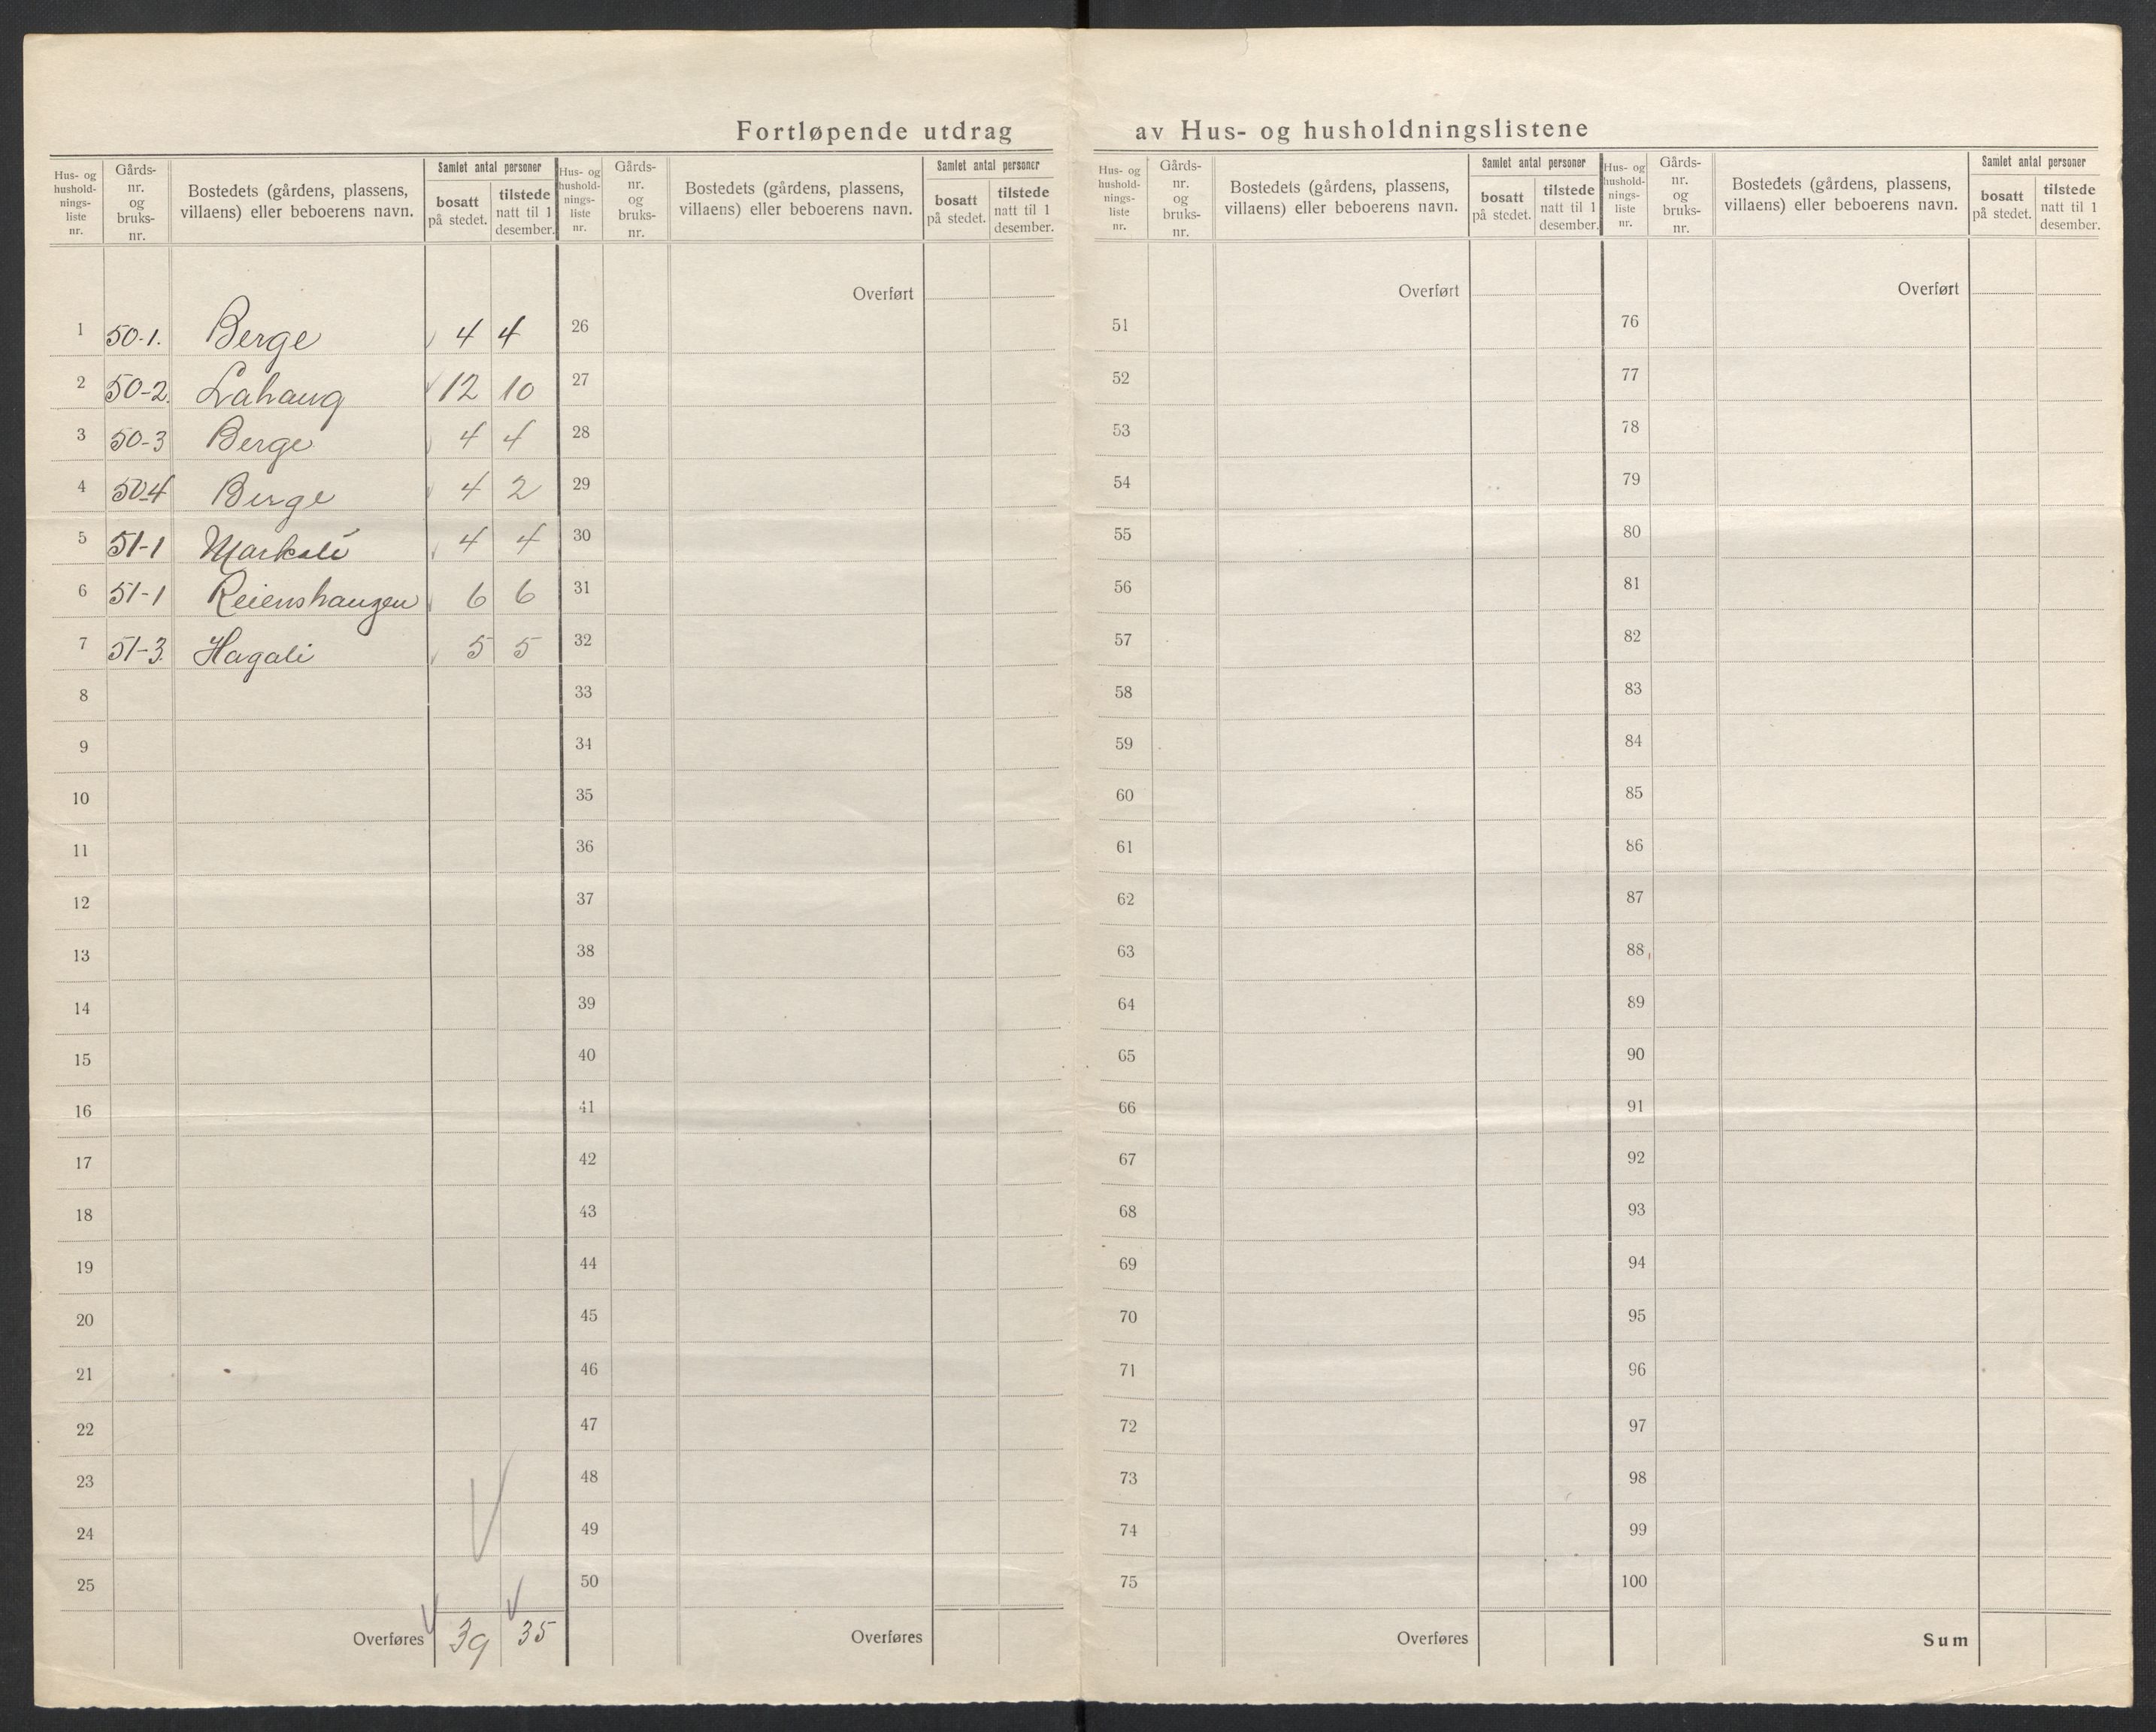 Fortløpende utdrag av Hus- og husholdningslistene
Hus- og hushold-nings-liste nr. | Gårds-nr. og bruks-nr. | Bostedets (gårdens, plassens, villaens) eller beboerens navn. | Samlet antal personer | bosatt på stedet. | tilstede natt til 1 desember.
1 50-1. Berge 4 4
2 50-2. Lahaug 12 10
3 50-3 Berge 4 4
4 50-4 Berge 4 2
5 51-1 Markali 4 4
6 51-1 Reienshaugen 6 6
7 51-3. Hagali 5 5
8
9
10
11
12
13
14
15
16
17
18
19
20
21
22
23
24
25
Overføres 39 35
Hus- og hushold-nings-liste nr. | Gårds-nr. og bruks-nr. | Bostedets (gårdens, plassens, villaens) eller beboerens navn. | Samlet antal personer | bosatt på stedet. | tilstede natt til 1 desember.
Overført
26
27
28
29
30
31
32
33
34
35
36
37
38
39
40
41
42
43
44
45
46
47
48
49
50
Overføres
Hus- og hushold-nings-liste nr. | Gårds-nr. og bruks-nr. | Bostedets (gårdens, plassens, villaens) eller beboerens navn. | Samlet antal personer | bosatt på stedet. | tilstede natt til 1 desember.
Overført
51
52
53
54
55
56
57
58
59
60
61
62
63
64
65
66
67
68
69
70
71
72
73
74
75
Overføres
Hus- og hushold-nings-liste nr. | Gårds-nr. og bruks-nr. | Bostedets (gårdens, plassens, villaens) eller beboerens navn. | Samlet antal personer | bosatt på stedet. | tilstede natt til 1 desember.
Overført
76
77
78
79
80
81
82
83
84
85
86
87
88
89
90
91
92
93
94
95
96
97
98
99
100
Sum